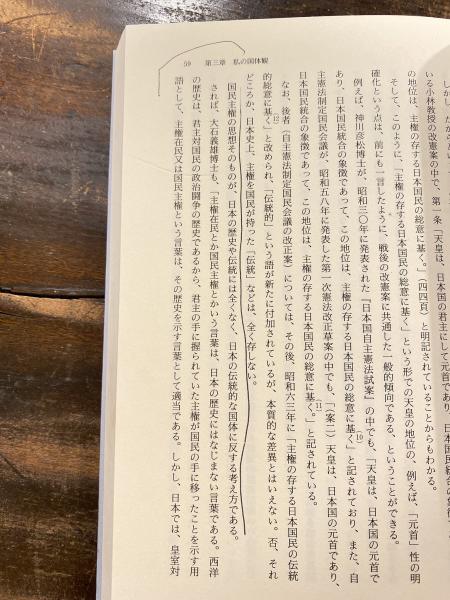 59　第三章　私の国体観
しかし、たかだか
いる小林教授の改憲案の中で、第一条「天皇は、日本国の君主にして元首であり、日本国
の地位は、主権の存する日本国民の総意に基く。」（四四頁）と明記されていることからもわかる。
そして、このように、「主権の存する日本国民の総意に基く」という形での天皇の地位の、例えば、「元首」性の明
確化という点は、前にも一言したように、戦後の改憲案に共通した一般的傾向である、ということができる。
例えば、神川彦松博士が、昭和三〇年に発表された『日本国自主憲法試案』の中でも、「天皇は、日本国の元首で
あり、日本国民統合の象徴であって、この地位は、主権の存する日本国民の総意に基く」(10)と記されており、また、自
主憲法制定国民会議が、昭和五八年に発表した第一次憲法改正草案の中でも、「（案二）天皇は、日本国の元首であり、
日本国民統合の象徴であって、この地位は、主権の存する日本国民の総意に基く。」(11)と記されている。
なお、後者（自主憲法制定国民会議の改正案）については、その後、昭和六三年に「主権の存する日本国民の伝統
的総意に基く」(12)と改められ、「伝統的」という語が新たに付加されているが、本質的な差異とはいえない。否、それ
どころか、日本史上、主権を国民が持った「伝統」などは、全く存しない。
国民主権の思想そのものが、日本の歴史や伝統には全くなく、日本の伝統的な国体に反する考え方である。
されば、大石義雄博士も、「主権在民とか国民主権とかいう言葉は、日本の歴史にはなじまない言葉である。西洋
の歴史は、君主対国民の政治闘争の歴史であるから、君主の手に握られていた主権が国民の手に移ったことを示す用
語として、主権在民又は国民主権という言葉は、その歴史を示す言葉として適当である。しかし、日本では、皇室対